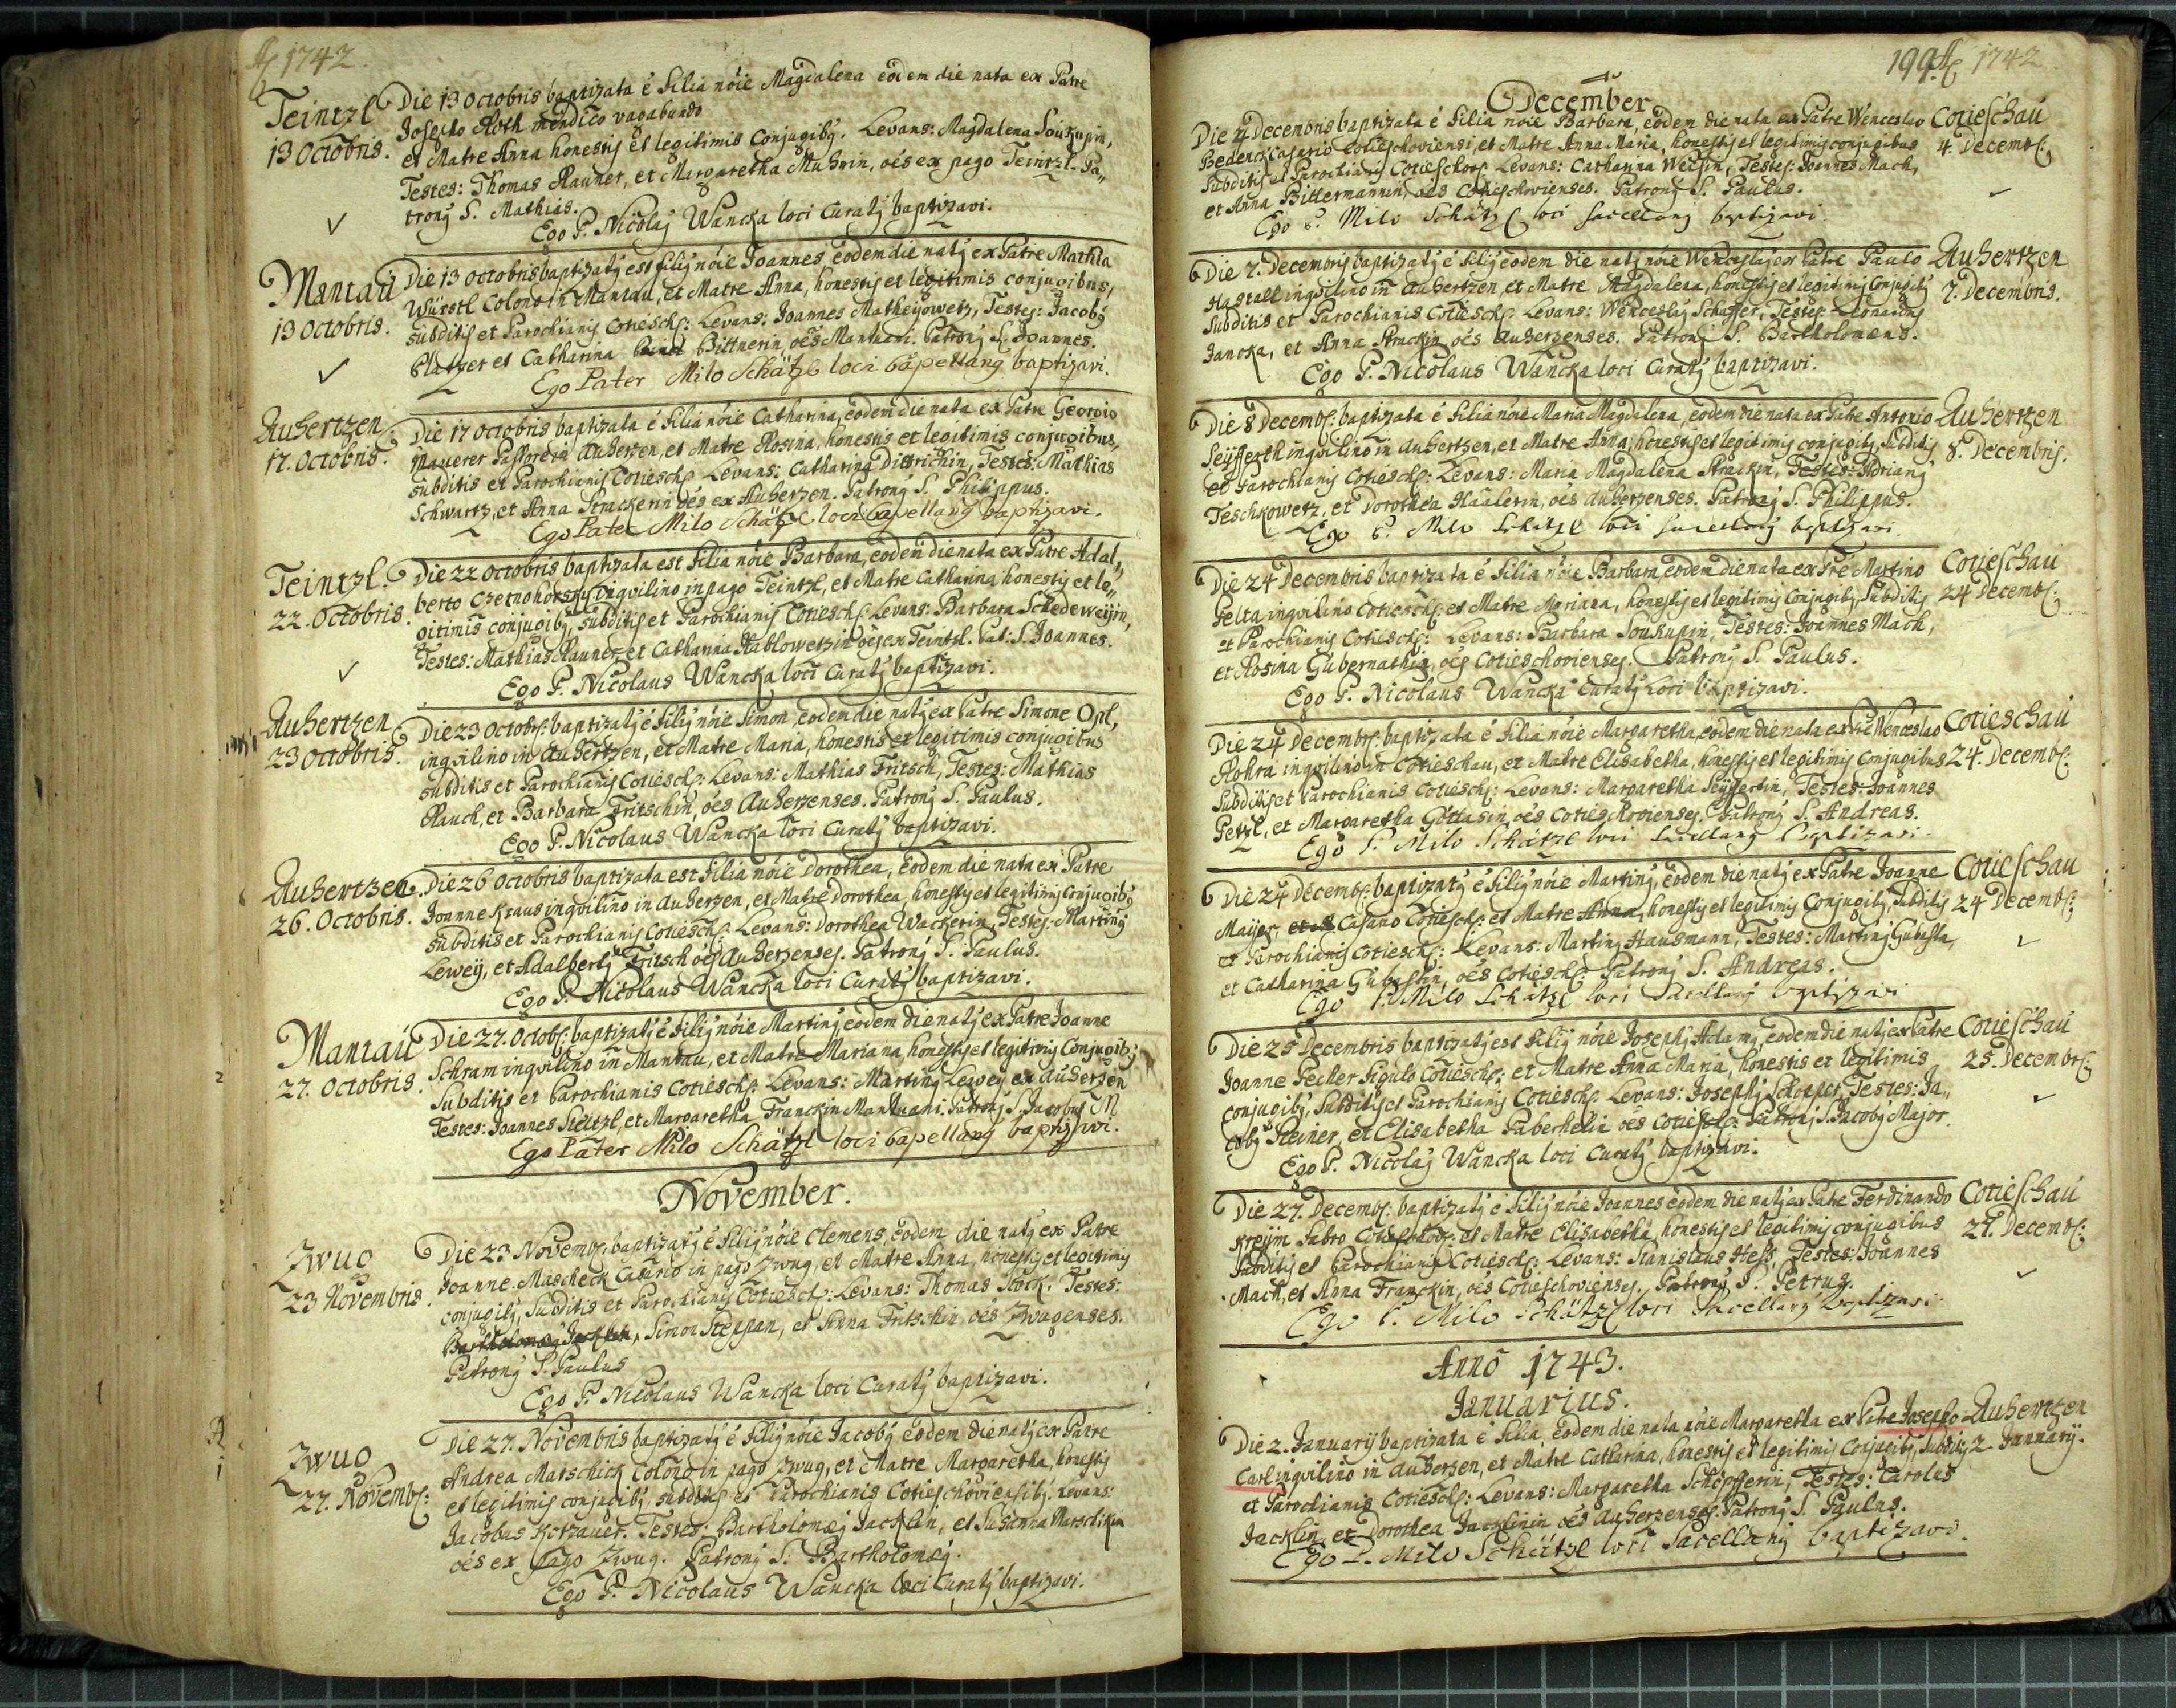 Aō 1742.
Teintzl
13 Octobris.
Die 13 Octobris baptizata ē Filia nōie Magdalena eodem die nata ex Patre
Josepho Roth mendico vagabundo
et Matre Anna honestis et legitimis Conjugibȝ. Levans: Magdalena Soukupin,
Testes: Thomas Rauner, et Margaretha Muhrin, oēs ex pago Teintzl. Pa„
tronȝ S. Mathias.
Ego P. Nicolaȝ Wancka loci Curatȝ baptizavi.
Mantau
13 Octobris.
Die 13 Octobris baptizatȝ est Filiȝ nōie Joannes eodem die natȝ ex Patre Mathia
Würstl Colono in Mantau, et Matre Anna, honestis et legitimis conjugibus,
subditis et Parochianis Cotiesch: Levans: Joannes Matheyowetz, Testes: Jacobȝ
Platzer et Catharina Bittnerin, oēs Mantuani. Patronȝ S. Joannes.
Ego Pater Milo Schätzl loci Capellanȝ baptizavi.
Auhertzen
17. Octobris.
Die 17 Octobris baptizata ē Filia nōie Catharina, eodem die nata ex Patre Georgio
Mauerer Pastore in Auherzen, et Matre Rosina, honestis et legitimis conjugibus,
subditis et Parochianis Cotiesch: Levans: Catharina Dittrichin, Testes: Mathias
Schwartz, et Anna Strackerin oēs ex Auherzen. Patronȝ S. Philippus.
Ego Pater Milo Schätzl loci Capellanȝ baptizavi.
Teintzl.
22. Octobris.
Die 22 Octobris baptizata est Filia nōie Barbara, eodem die nata ex Patre Adal„
berto Czernohorsky inqvilino in pago Teintzl, et Matre Catharina, honestis et le„
gitimis conjugibȝ, subditis et Parochianis Cotiesch: Levans: Barbara Schedeweijin,
Testes: Mathias Rauner, et Catharina Hablowetzin oēs ex Teintzl. Pat: S. Joannes.
Ego P. Nicolaus Wancka loci Curatȝ baptizavi.
Auhertzen
23 Octobris.
Die 23 Octobr: baptizatȝ ē Filiȝ nōie Simon, eodem die natȝ ex Patre Simone Opl,
inqvilino in Auhertzen, et Matre Maria, honestis et legitimis conjugibus
subditis et Parochianis Cotiesch: Levans: Mathias Fritsch, Testes: Mathias
Rauch, et Barbara Fritschin, oēs Auherzenses. Patronȝ S. Paulus.
Ego P. Nicolaus Wancka loci Curatȝ baptizavi.
Auhertzen.
26. Octobris.
Die 26 Octobris baptizata est Filia nōie Dorothea, eodem die nata ex Patre
Joanne Kraus inqvilino in Auherzen, et Matre Dorothea, honestis et legitimis Conjugibȝ
subditis et Parochianis Cotiesch: Levans: Dorothea Wackerin, Testes: Martinȝ
Lewey, et Adalbertȝ Fritsch oēs Auherzenses. Patronȝ S. Paulus.
Ego P. Nicolaus Wancka loci Curatȝ baptizavi.
Mantau
27. Octobris.
Die 27. Octob: baptizatȝ ē Filiȝ nōie Martinȝ eodem die natȝ ex Patre Joanne
Schram inqvilino in Mantau, et Matre Mariana, honestis et legitimis Conjugibȝ,
Subditis et Parochianis Cotiesch: Levans: Martinȝ Lewey ex Auherzen
Testes: Joannes Steltzl, et Margaretha Franckin Mantuani. Patronȝ S. Jacobus M.
Ego Pater Milo Schätzl loci Capellanȝ baptizavi.
November.
Zwug
23 Novembris.
Die 23 Novemb: baptizatȝ ē Filiȝ nōie Clemens, eodem die natȝ ex Patre
Joanne Mascheck Casario in pago Zwug, et Matre Anna, honestis et legitimis
conjugibȝ, Subditis et Parochianis Cotiesch: Levans: Thomas Köck. Testes:
Simon Steppan, et Anna Fritschin oēs Zwugenses.
Patronȝ S. Paulus
Ego P. Nicolaus Wancka loci Curatȝ baptizavi.
Zwug
27. Novemb:
Die 27. Novembris baptizatȝ ē Filiȝ nōie Jacobȝ eodem die natȝ ex Patre
Andrea Marschick Colono in pago Zwug, et Matre Margaretha, honestis
et legitimis conjugibȝ, subditis et Parochianis Cotieschoviensibȝ. Levans:
Jacobus Kotzauer. Testes: Bartholomeȝ Jacklin, et Susanna Marschikin
oēs ex pago Zwug. Patronȝ S. Bartholomeȝ.
Ego P. Nicolaus Wancka loci Curatȝ baptizavi.
199. Aō 1742
December
Die 4 Decembris baptizata ē Filia nōie Barbara, eodem die nata ex Patre Wenceslao
Bederck Casario Cotieschoviensi, et Matre Anna Maria, honestis et legitimis conjugibus
Subditis et Parochianis Cotieschov: Levans: Catharina Weisin, Testes: Joannes Mach,
et Anna Bittermannin, oēs Cotieschovienses. Patronȝ S. Paulus.
Ego P. Milo Schätzl loci Sacellanȝ baptizavi.
Cotieschau
4. Decemb:
Die 7. Decembris baptizatȝ ē Filiȝ eodem die natȝ nōie Wenceslaȝ ex Patre Paulo
Hastall inqvilino in Auhertzen, et Matre Magdalena, honestis et legitimis Conjugibȝ
Subditis et Parochianis Cotiesch: Levans: Wenceslaȝ Schaffer, Testes: Leonardȝ
Jancka, et Anna Strackin oēs Auherzenses. Patronȝ S. Bartholomeus.
Ego P. Nicolaus Wancka loci Curatȝ baptizavi.
Auhertzen
7. Decembris.
Die 8 Decemb: baptizata ē Filia nōie Maria Magdalena, eodem die nata ex Patre Antonio
Seyfferth inqvilino in Auhertzen, et Matre Anna, honestis et legitimis conjugibȝ, Subditis
et Parochianis Cotiesch: Levans: Maria Magdalena Strackin, Testes: Adrianȝ
Teschkowetz, et Dorothea Haalerin, oēs Auherzenses. Patronȝ S. Philippus.
Ego P. Milo Schätzl loci Sacellanȝ baptizavi.
Auhertzen
8. Decembris.
Die 24 Decembris baptizata ē Filia nōie Barbara eodem die nata ex Pre Martino
Pelta inqvilino Cotiesch: et Matre Mariana, honestis et legitimis Conjugibȝ, Subditis
et Parochianis Cotiesch: Levans: Barbara Soukupin, Testes: Joannes Mach,
et Rosina Gubernathin, oēs Cotieschovienses. Patronȝ S. Paulus.
Ego P. Nicolaus Wancka Curatȝ Loci baptizavi.
Cotieschau
24 Decemb:
Die 24 Decemb: baptizata ē Filia nōie Margaretha, eodem die nata ex Pre Wenceslao
Rohra inqvilino in Cotieschau, et Matre Elisabetha, honestis et legitimis Conjugibus
Subditis et Parochianis Cotiesch: Levans: Margaretha Seyffertin, Testes: Joannes
Petzl, et Margaretha Göttasin, oēs Cotieschovienses. Patronȝ S. Andreas.
Ego P. Milo Schätzl loci Sacellanȝ baptizavi.
Cotieschau
24. Decemb:
Die 24 Decemb: baptizatȝ ē Filiȝ nōie Martinȝ, eodem die natȝ ex Patre Joanne
Maijer, Casario Cotiesch: et Matre Anna, honestis et legitimis Conjugibȝ, Subditis
et Parochianis Cotiesch: Levans: Martinȝ Hausmann, Testes: Martinȝ Gubista,
et Catharina Gubistin, oēs Cotiesch: Patronȝ S. Andreas.
Ego P. Milo Schätzl loci Sacellanȝ baptizavi
Cotieschau
24 Decemb:
Die 25 Decembris baptizatȝ est Filiȝ nōie Josephȝ Adamȝ, eodem die natȝ ex Patre
Joanne Pecher Figulo Cotiesch: et Matre Anna Maria, honestis et legitimis
conjugibȝ, Subditis et Parochianis Cotiesch: Levans: Josephȝ Testes: Ja„
cobȝ Steiner, et Elisabetha Haberhelin oēs Cotiesch: Patronȝ S. Jacobȝ Major.
Ego P. Nicolaȝ Wancka loci Curatȝ baptizavi.
Cotieschau
25. Decembr:
Die 27. Decemb: baptizatȝ ē Filiȝ nōie Joannes eodem die natȝ ex Patre Ferdinando
Kreijm Fabro Cotieschov: et Matre Elisabetha, honestis et legitimis conjugibus
Subditis et Parochianis Cotiesch: Levans: Stanislaus Hess, Testes: Joannes
Mach, et Anna Franckin, oēs Cotieschovienses. Patronȝ S. Petrus.
Ego P. Milo Schätzl loci Sacellanȝ baptizavi.
Cotieschau
27. Decemb:
Anno 1743.
Januarius.
Die 2. Januarij baptizata ē Filia, eodem die nata nōie Margaretha ex Patre Josepho
Carl inqvilino in Auherzen, et Matre Catharina, honestis et legitimis Conjugibȝ, Subditis
et Parochianis Cotiesch: Levans: Margaretha Schöpfferin, Testes: Carolus
Jacklin, et Dorothea Jacklinin oēs Auherzenses. Patronȝ S. Paulus.
Ego P. Milo Schätzl loci Sacellanȝ baptizavi.
Auhertzen
2. Januarij.